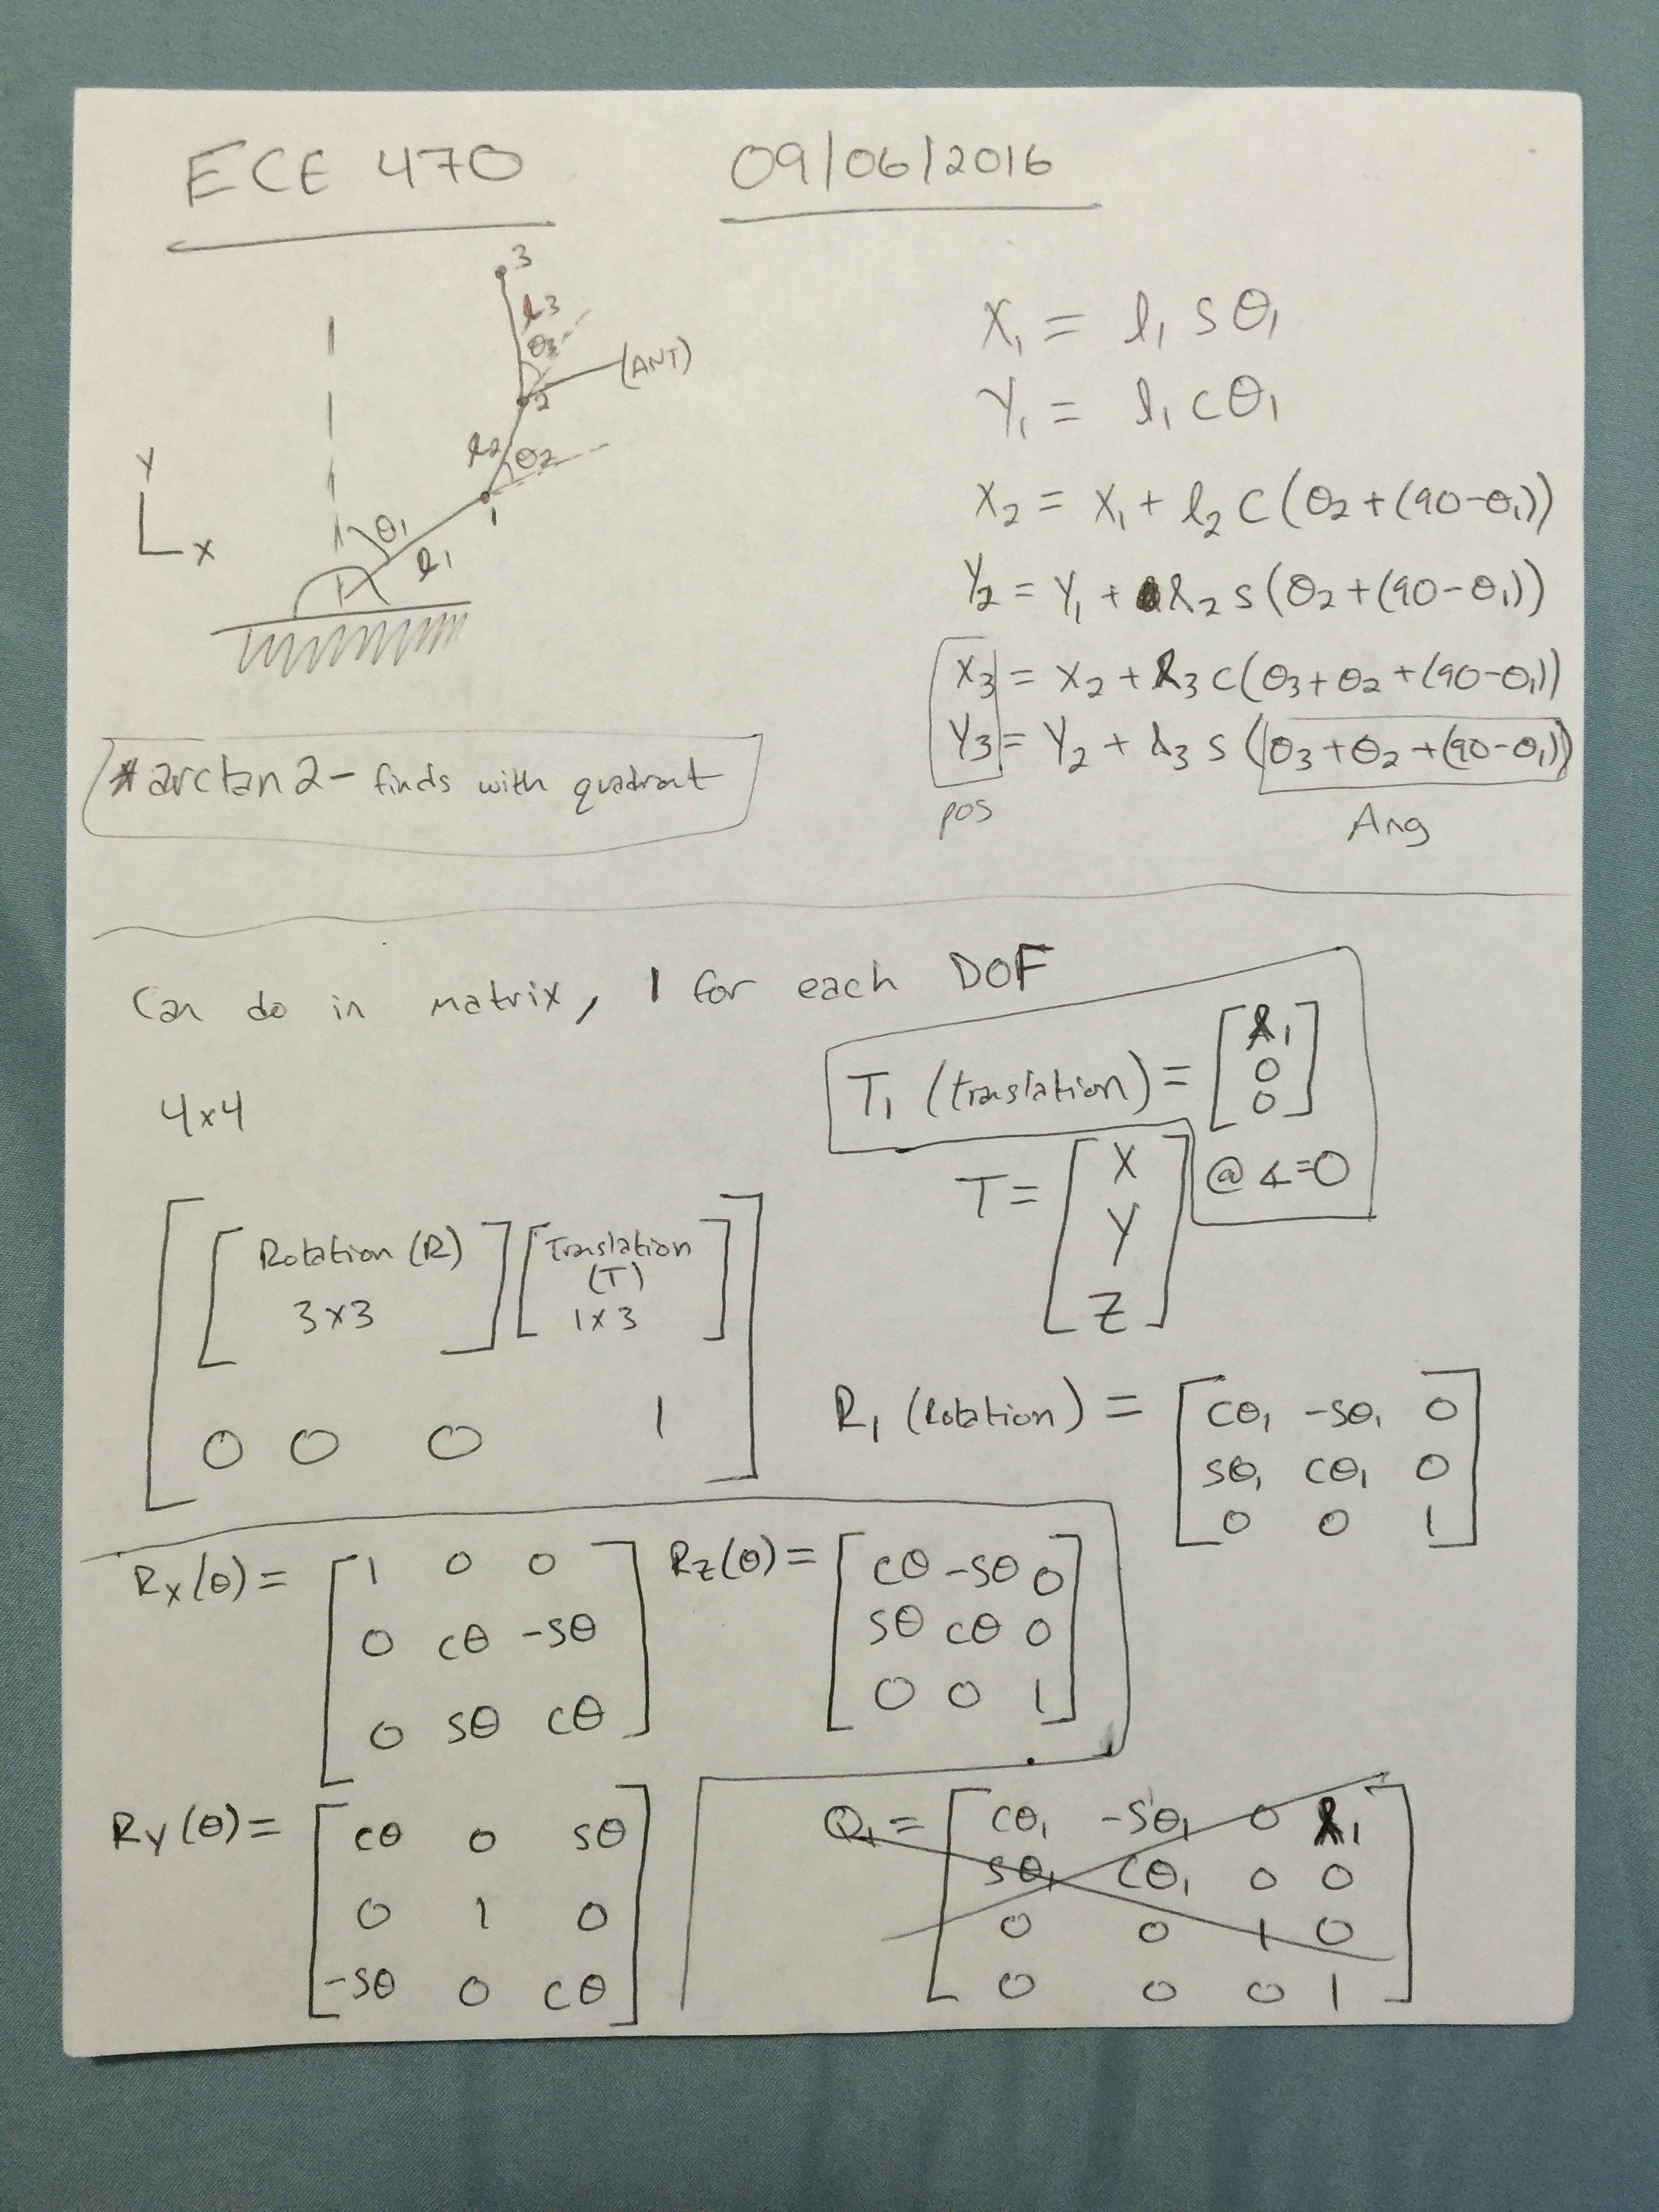 ECE 470 09/06/2016
3
l3
θ3
(ANT)
2
l2 θ2
Y
1
X
θ1
l1
X1 = l1 sθ1
Y1 = l1 cθ1
X2 = X1 + l2 c(θ2+(90-θ1))
Y2 = Y1 + l2 s(θ2+(90-θ1))
X3 = X2 + l3 c(θ3+θ2+(90-θ1))
Y3 = Y2 + l3 s(θ3+θ2+(90-θ1))
pos Ang
*arctan2 - finds with quadrant
Can do in matrix, 1 for each DOF
T1 (translation) = [l1
0
0]
@ ∡=0
T = [X
Y
Z]
4x4
[[Rotation (R) 3x3] [Translation (T) 1x3]
0 0 0 1]
R1 (Rotation) = [cθ1 -sθ1 0
sθ1 cθ1 0
0 0 1]
Rx(θ) = [1 0 0
0 cθ -sθ
0 sθ cθ]
Rz(θ) = [cθ -sθ 0
sθ cθ 0
0 0 1]
Ry(θ) = [cθ 0 sθ
0 1 0
-sθ 0 cθ]
Q1 = [cθ1 -sθ1 0 l1
sθ1 cθ1 0 0
0 0 1 0
0 0 0 1]